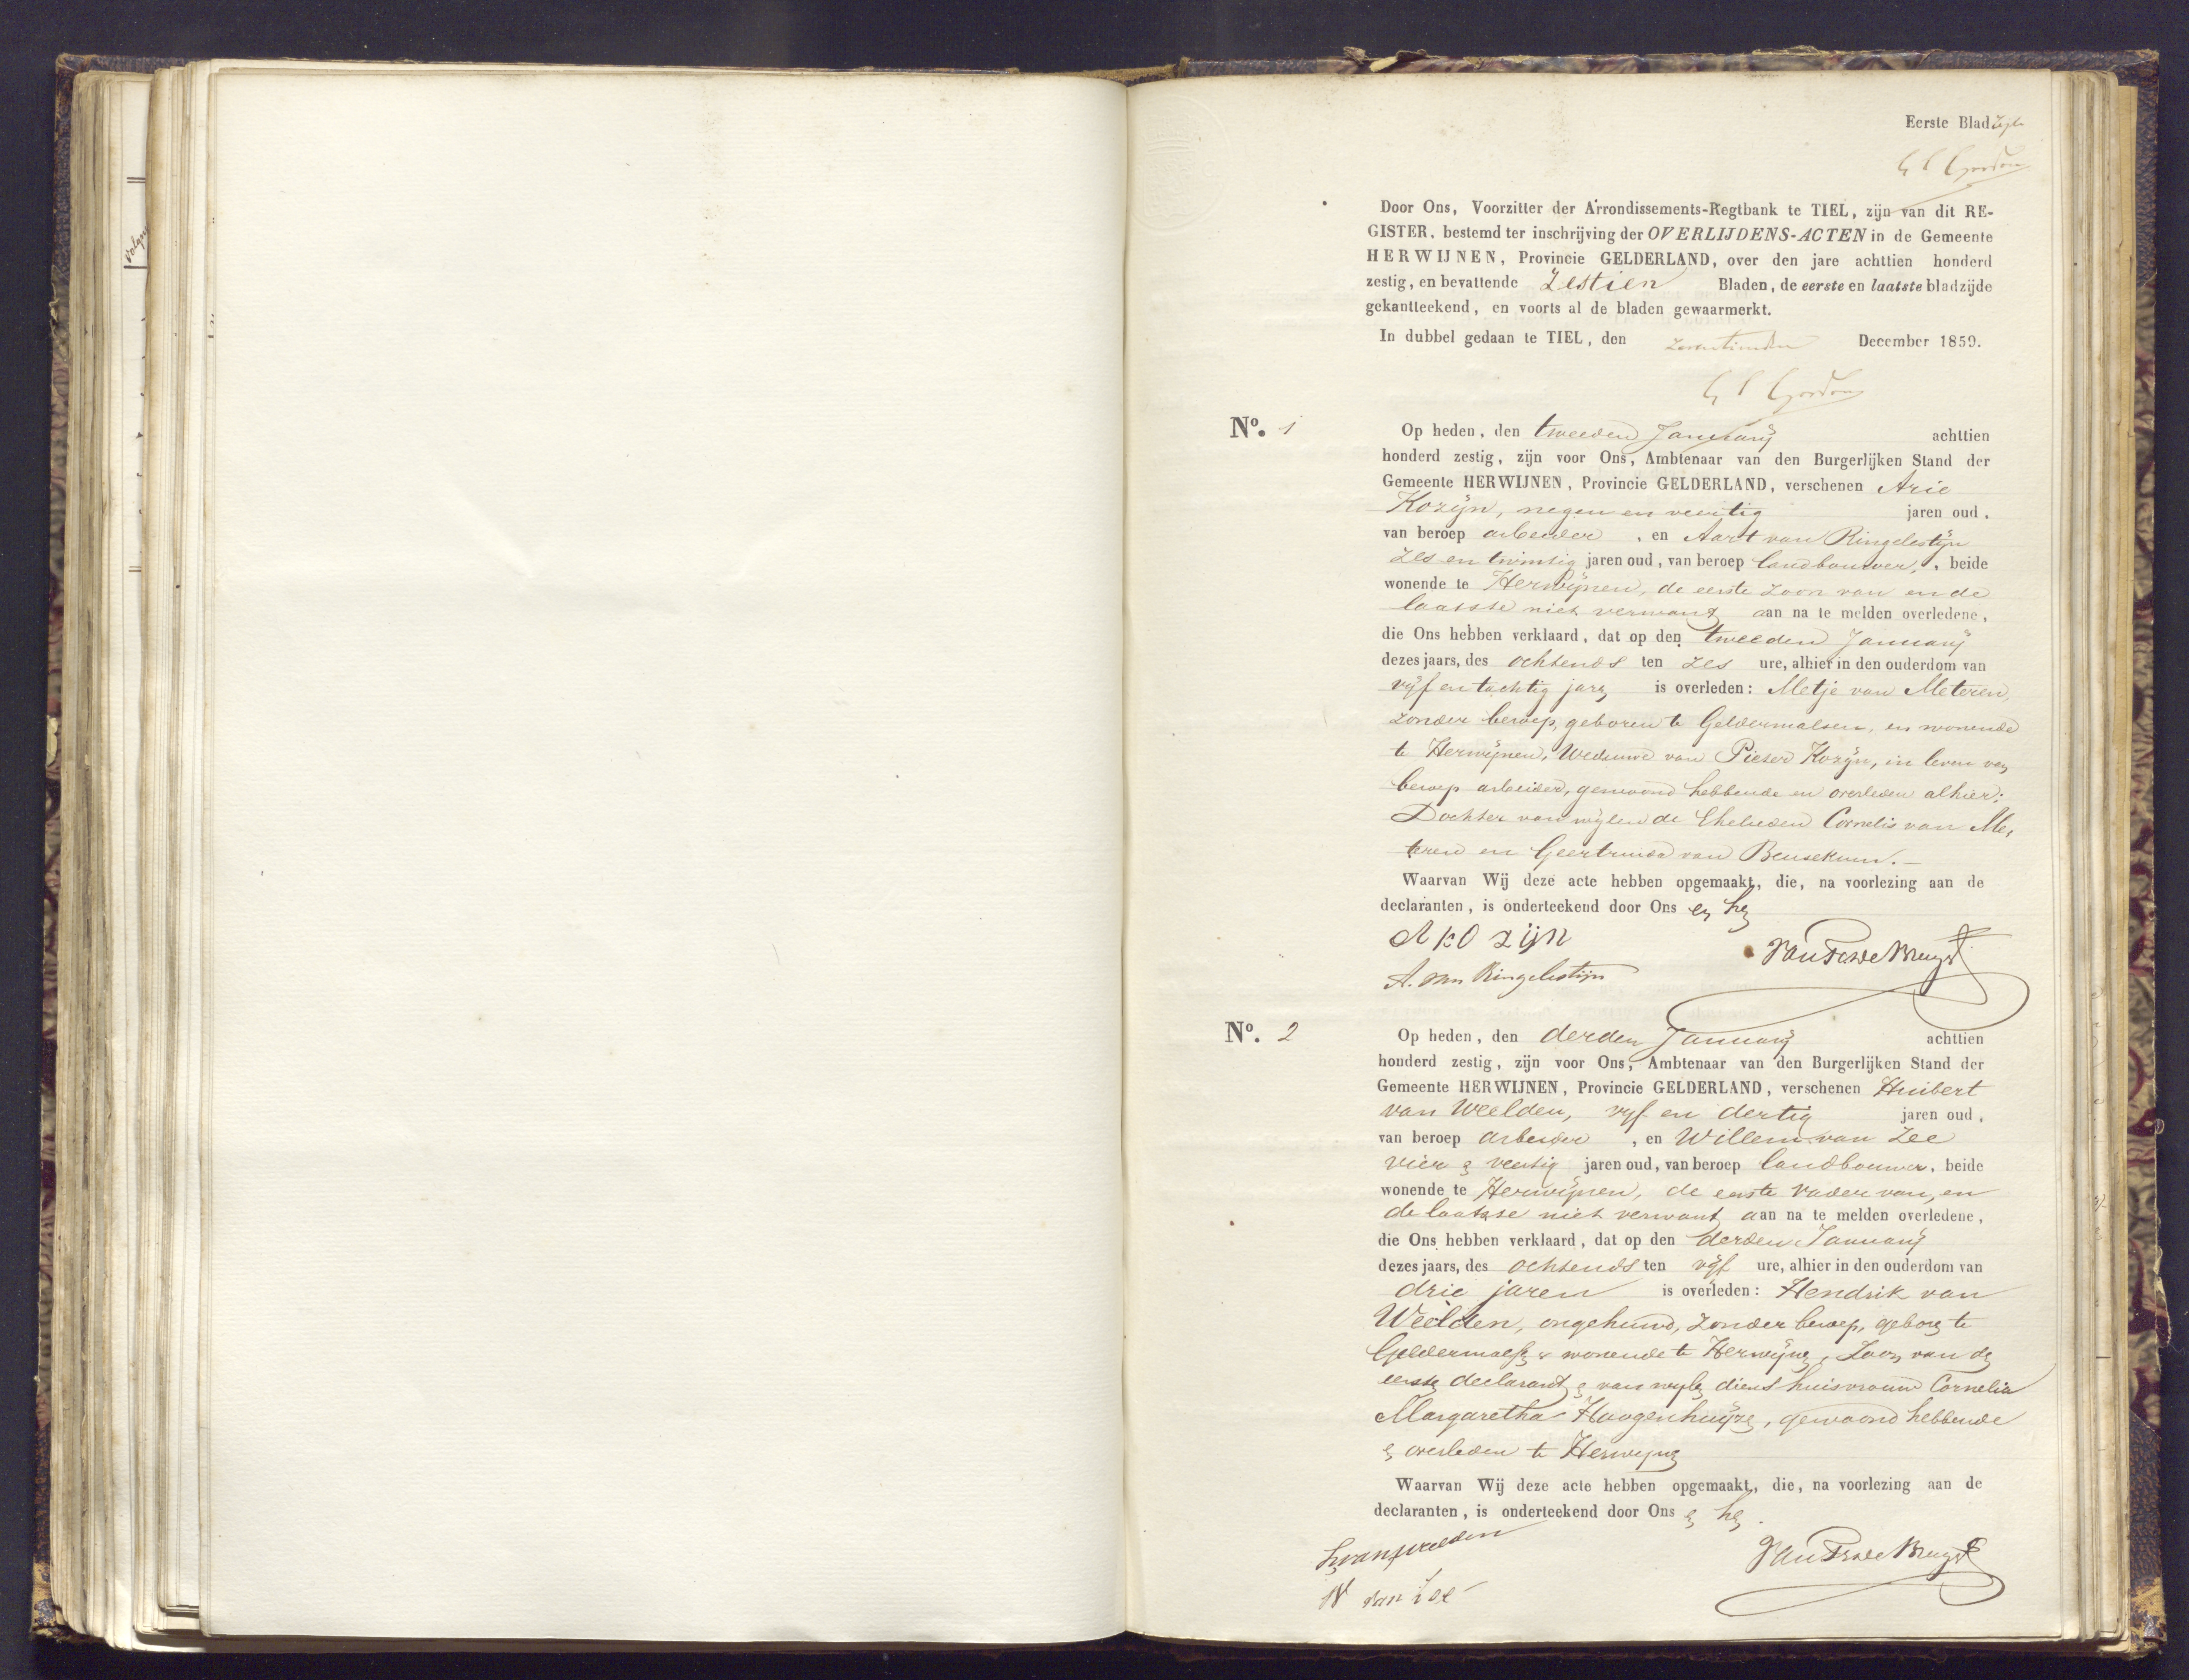 Volgn
Eerste Blad zijde
G C Gordon
Door Ons, Voorzitter der Arrondissements-Regtbank te TIEL, zijn van dit RE-
GISTER, bestemd ter inschrijving der OVERLIJDENS-ACTEN in de Gemeente
HERWIJNEN, Provincie GELDERLAND, over den jare achttien honderd
zestig, en bevattende Zestien Bladen, de eerste en laatste bladzijde
gekantteekend, en voorts al de bladen gewaarmerkt.
In dubbel gedaan te TIEL, den zeventienden December 1859.
G C Gordon
No. 1
Op heden, den tweeden Januarij achttien
honderd zestig, zijn voor Ons, Ambtenaar van den Burgerlijken Stand der
Gemeente HERWIJNEN, Provincie GELDERLAND, verschenen Arie
Kozijn, negen en veertig jaren oud,
van beroep arbeider, en Aart van Ringelestijn
zes en twintig jaren oud, van beroep landbouwer, beide
wonende te Herwijnen, de eerste zoon van en de
laatste niet verwant aan na te melden overledene,
die Ons hebben verklaard, dat op den tweeden Januarij
dezes jaars, des ochtends ten zes ure, alhier in den ouderdom van
vijf en tachtig jaren is overleden: Metje van Meteren,
zonder beroep, geboren te Geldermalsen, en wonende
te Herwijnen, Weduwe van Pieter Kozijn, in leven van
beroep arbeider, gewoond hebbende en overleden alhier;
Dochter van wijlen de Ehelieden Cornelis van Me,
teren en Geertruida van Beusekum.-
Waarvan Wij deze acte hebben opgemaakt, die, na voorlezing aan de
declaranten, is onderteekend door Ons en hen
A kozijn
A. van Ringelestijn
No. 2
Op heden, den derden Januarij achttien
honderd zestig, zijn voor Ons, Ambtenaar van den Burgerlijken Stand der
Gemeente HERWIJNEN, Provincie GELDERLAND, verschenen Huibert
van Weelden, vijf en dertig jaren oud,
van beroep arbeider, en Willem van Zee
vier en veertig jaren oud, van beroep landbouwer, beide
wonende te Herwijnen, de eerste vader van, en
de laatste niet verwant aan na te melden overledene,
die Ons hebben verklaard, dat op den derden Januarij
dezes jaars, des ochtends ten vijf ure, alhier in den ouderdom van
drie jaren is overleden: Hendrik van
Weelden, ongehuwd, zonder beroep, geboren te
Geldermalsen & wonende te Herwijnen, Zoon van den
eersten declarant en van wijlen diens huisvrouw Cornelia
Margaretha Hoogenhuijzen, gewoond hebbende
en overleden te Herwijnen
Waarvan Wij deze acte hebben opgemaakt, die, na voorlezing aan de
declaranten, is onderteekend door Ons en hen.
H van weelden
W van Zee